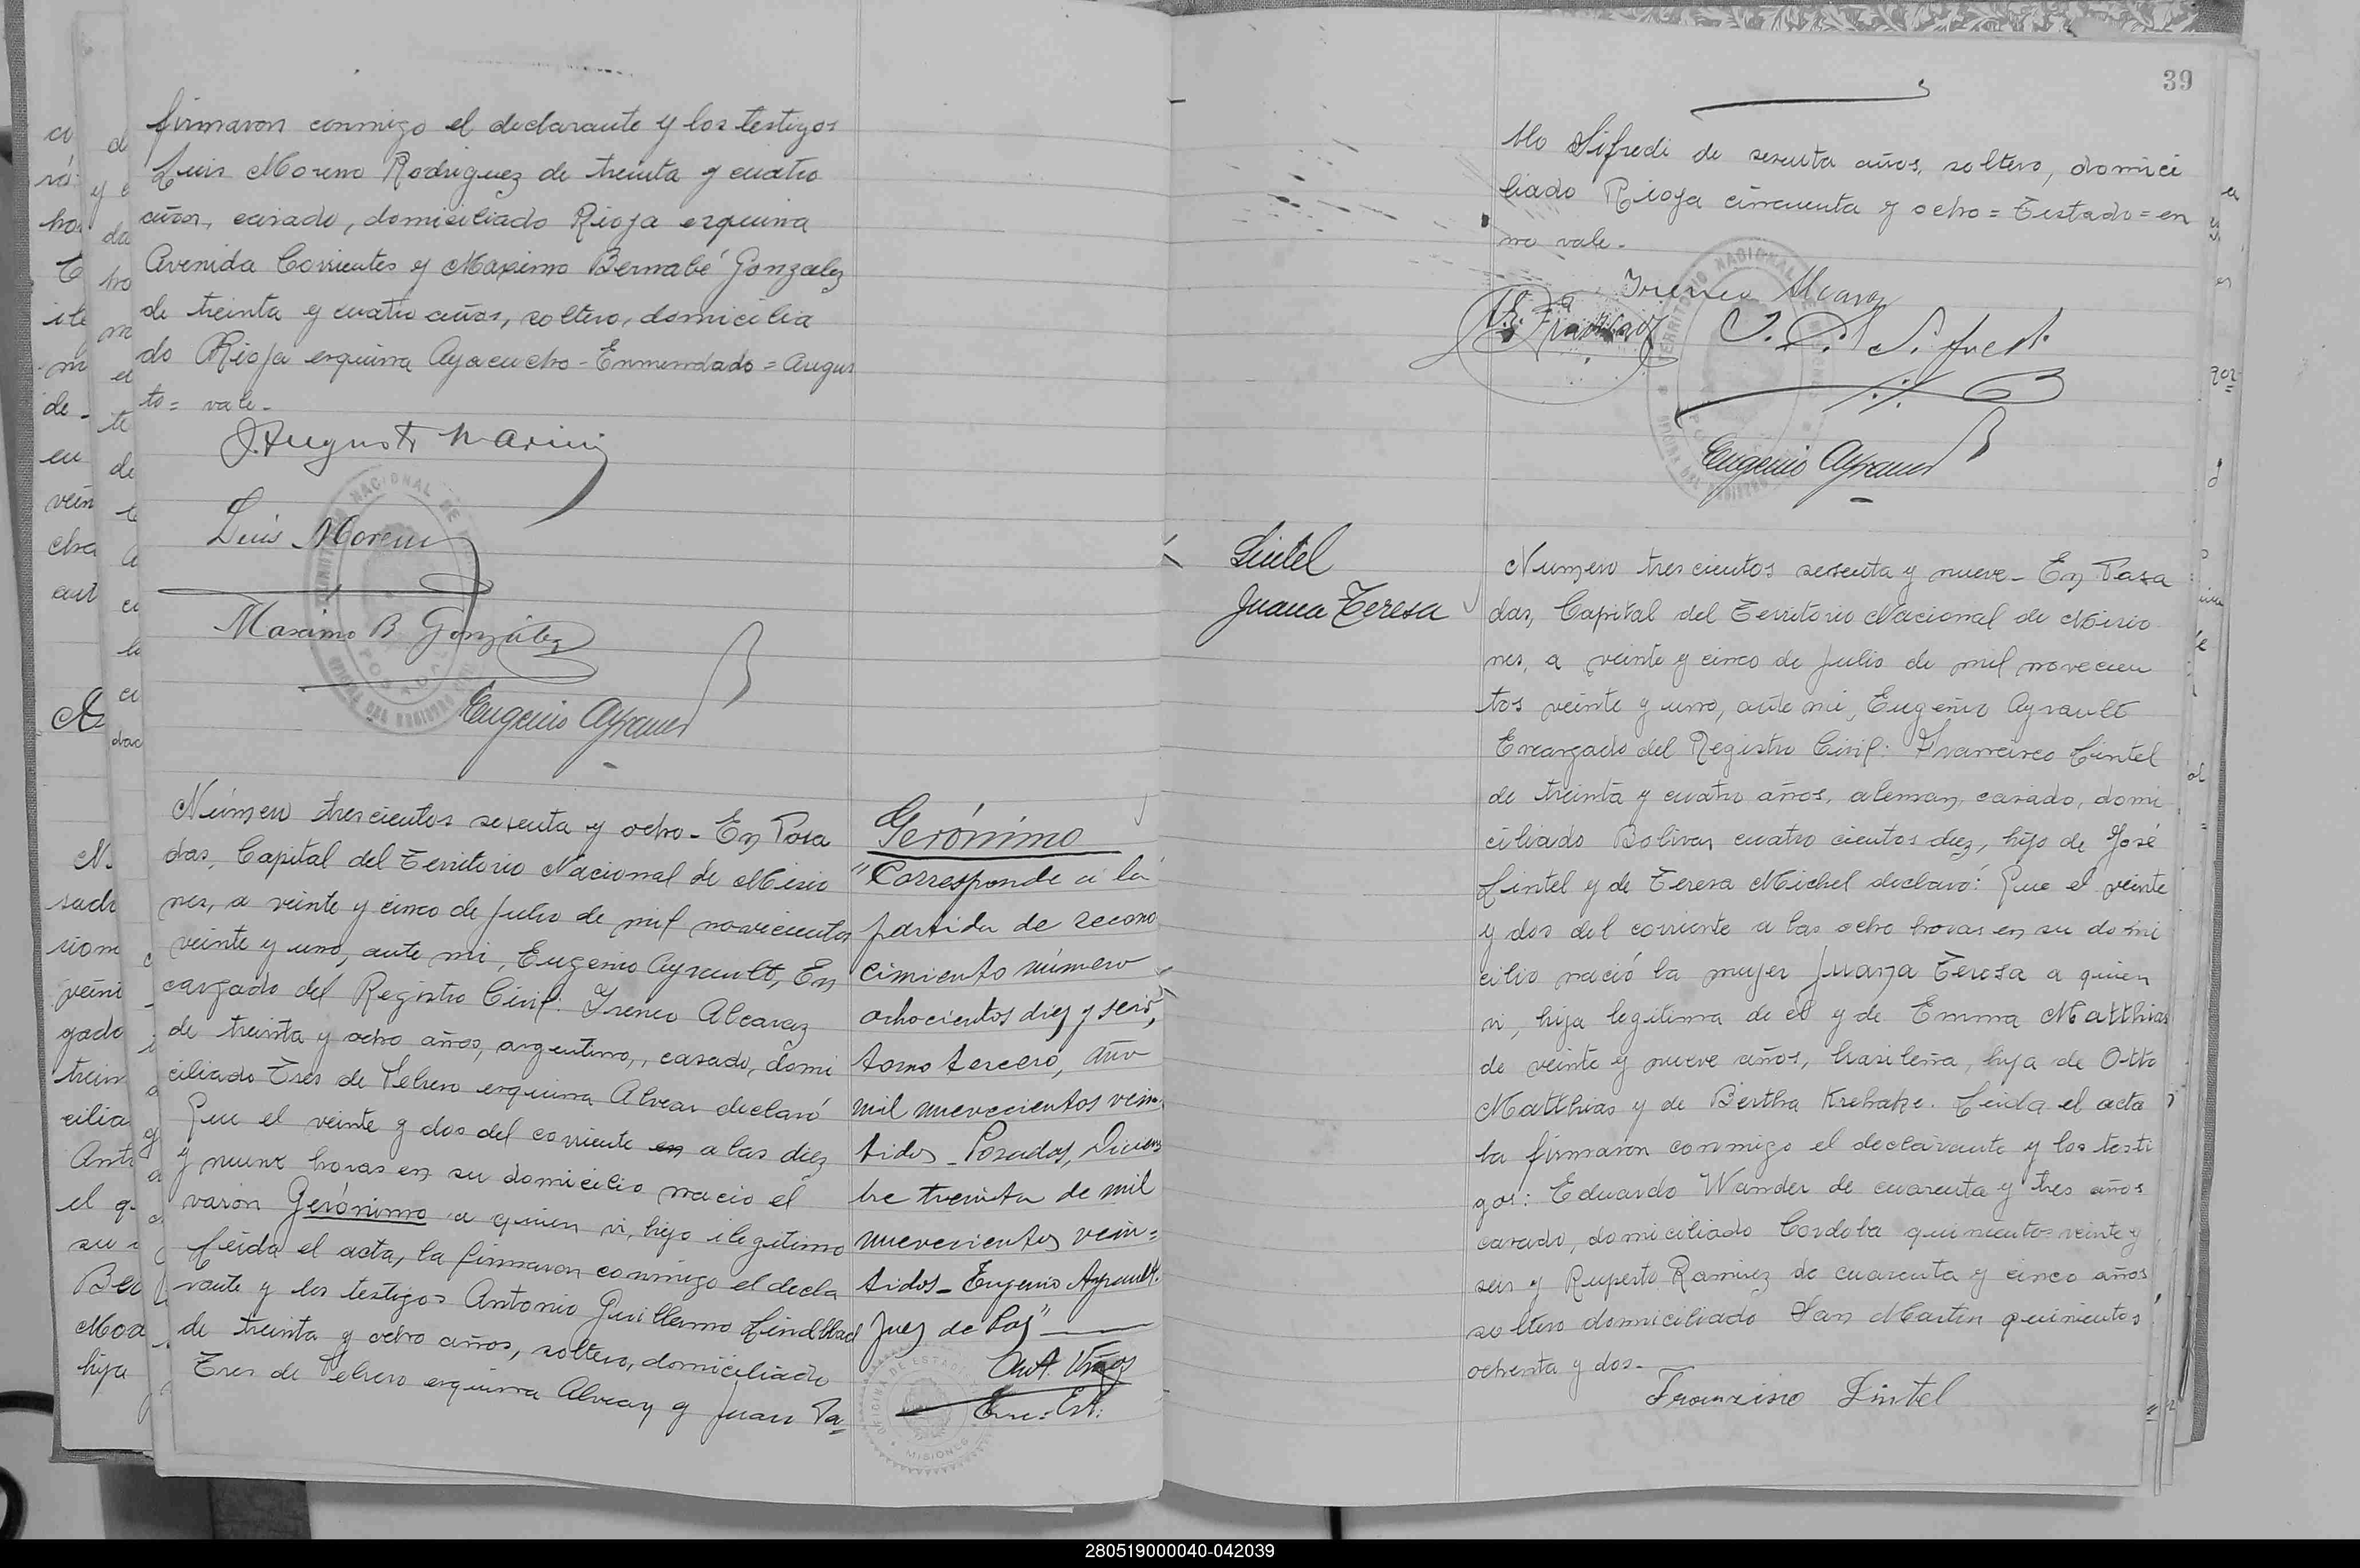 firmaron conmigo el declarante y los testigos
Luis Moreno Rodriguez de treinta y cuatro
años, casado, domiciliado Rioja esquina
Avenida Corrientes y Maximo Bernabé Gonzalez
de treinta y cuatro años, soltero, domicilia
do Rioja esquina Ayacucho - Enmendado = Augus
to = vale -
J. Augusto Marini
Luis Moreno
Maximo B. González
Eugenio Ayrault
Número trescientos sesenta y ocho - En Posa
das, Capital del Territorio Nacional de Misio
nes, a veinte y cinco de Julio de mil novecientos
veinte y uno, ante mi, Eugenio Ayrault, En
cargado del Registro Civil: Ireneo Alcaraz
de treinta y ocho años, argentino, casado, domi
ciliado Tres de Febrero esquina Alvear declaró
Que el veinte y dos del corriente en a las diez
y nueve horas en su domicilio nació el
varon Gerónimo a quien vi, hijo ilegitimo
Leida el acta, la firmaron conmigo el decla
rante y los testigos Antonio Guillermo Lindblad
de treinta y ocho años, soltero, domiciliado
Tres de Febrero esquina Alvear y Juan Pa=
Gerónimo
"Corresponde a la
partida de recono
cimiento número
ochocientos diez y seis,
tomo tercero, año
mil novecientos vein
tidos - Posadas, Diciem
bre treinta de mil
novecientos vein=
tidos - Eugenio Ayrault.
Juez de Paz"
Enc. Est.
OFICINA DE ESTADI
MISIONES
39
blo Sifredi de sesenta años, soltero, domici
liado Rioja cincuenta y ocho = Testado = en
no vale -
Ireneo Alcaraz
Eugenio Ayrault
Lintel
Juana Teresa
Numero trescientos sesenta y nueve - En Posa
das, Capital del Territorio Nacional de Misio
nes, a veinte y cinco de Julio de mil novecien
tos veinte y uno, ante mi, Eugenio Ayrault
Encargado del Registro Civil: Francisco Lintel
de treinta y cuatro años, aleman, casado, domi
ciliado Bolivar cuatro cientos diez, hijo de José
Lintel y de Teresa Michel declaró: Que el veinte
y dos del corriente a las ocho horas en su domi
cilio nació la mujer Juana Teresa a quien
vi, hija legitima de el y de Emma Matthias
de veinte y nueve años, brasileña, hija de Otto
Matthias y de Bertha Krehake. Leida el acta
la firmaron conmigo el declarante y los testi
gos: Eduardo Wander de cuarenta y tres años
casado, domiciliado Cordoba quinientos veinte y
seis y Ruperto Ramirez de cuarenta y cinco años
soltero domiciliado San Martin quinientos
ochenta y dos -
Francisco Lintel
280519000040-042039